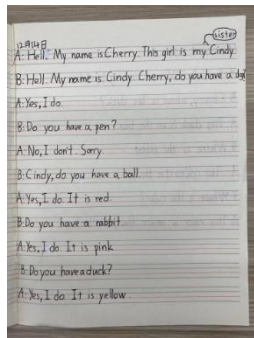 sister
12月14日
A: Hell. My name is Cherry. This girl is my Cindy.
B: Hell. My name is Cindy. Cherry, do you have a dog
A: Yes, I do.
B: Do you have a pen?
A: No, I don't. Sorry.
B: Cindy, do you have a ball.
A: Yes, I do. It is red.
B: Do you have a rabbit.
A: Yes, I do It is pink.
B: Do you have a duck?
A: Yes, I do It is yellow.